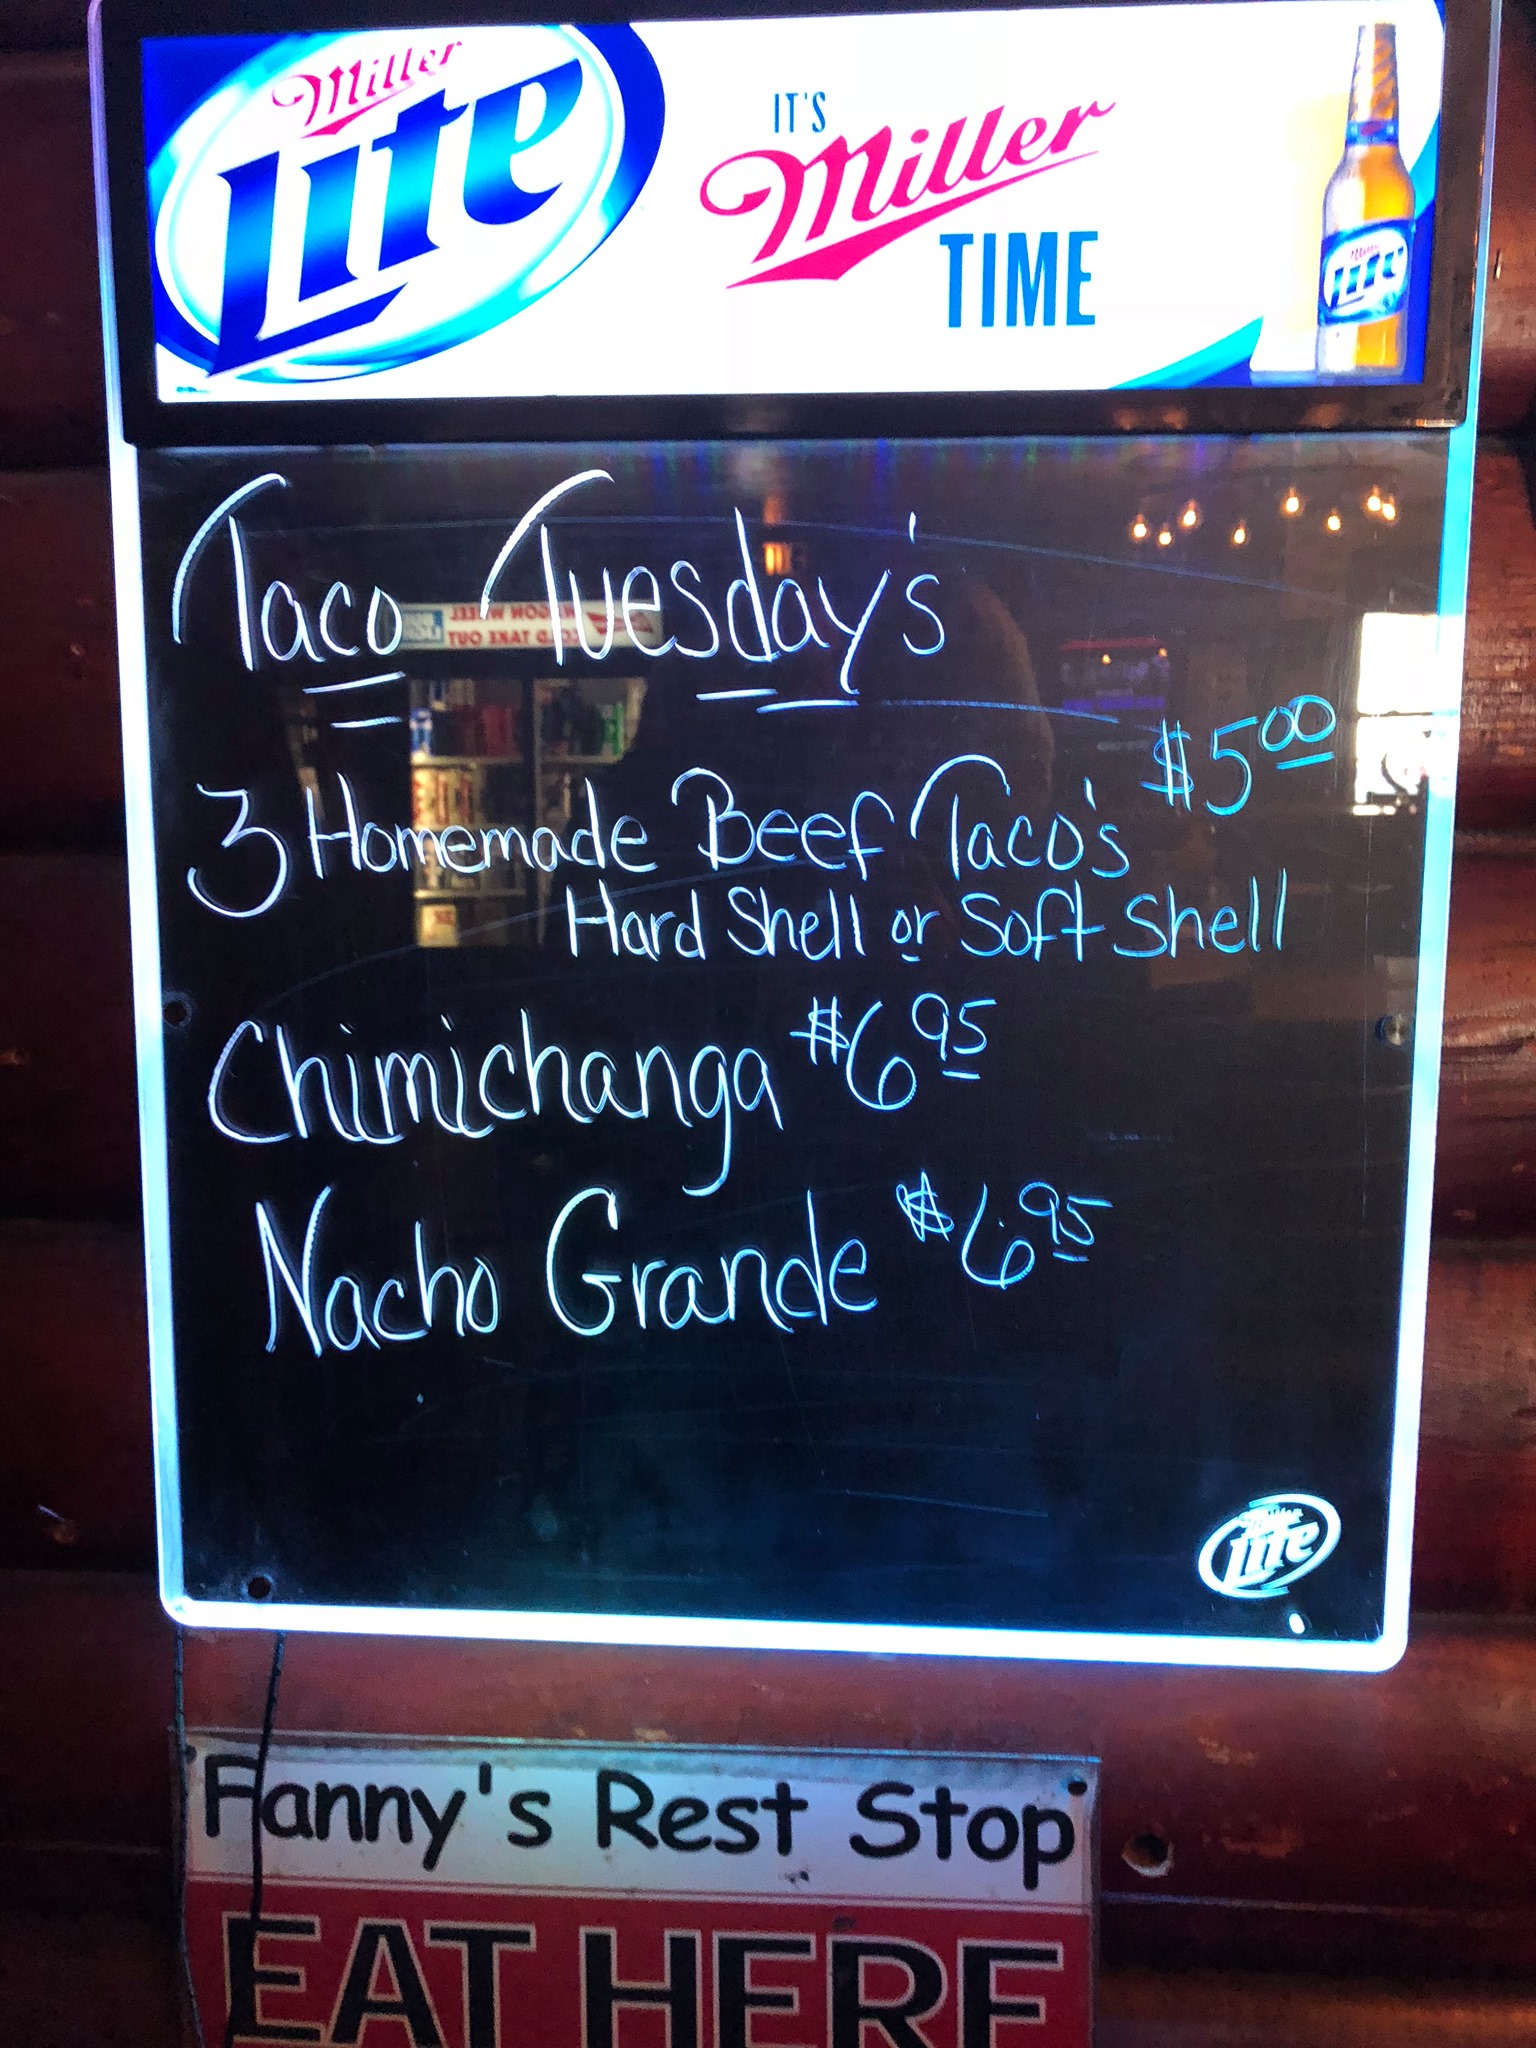 Miller
Lite
IT'S
Miller
TIME
Miller
Lite
Taco Tuesday's
WAGON WHEEL
COLD TAKE OUT
$5.00
3 Homemade Beef Taco's
Hard Shell or Soft Shell
Chimichanga $6.95
Nacho Grande $6.95
Miller
Lite
Fanny's Rest Stop
EAT HERE